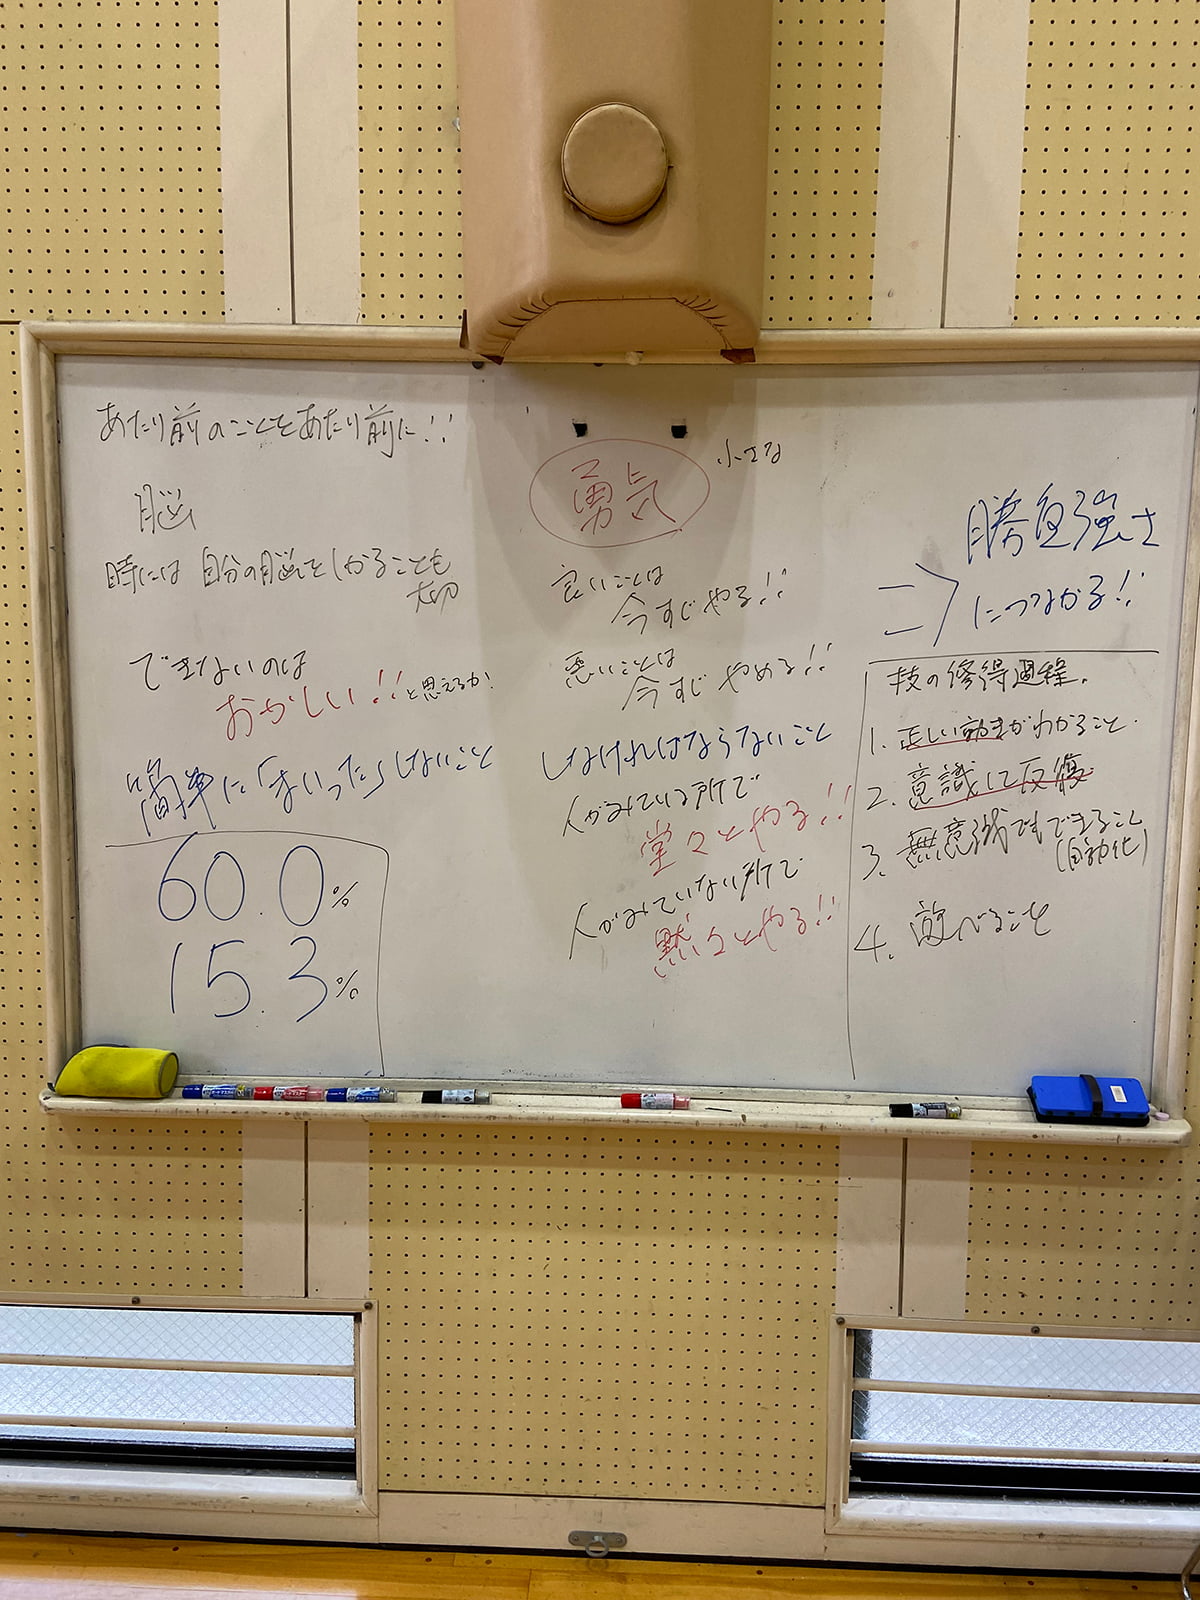 あたり前のことをあたり前に!!
脳
時には 自分の脳をしかることも
大切
できないのは
おかしい!!と思えるか!
簡単に「まいった」しないこと
60.0%
15.3%
小さな
勇気
良いことは
今すじやる!!
悪いことは
今すじやめる!!
しなければならないこと
人がみている所で
堂々とやる!!
人がみていない所で
黙々とやる!!
勝負強さ
につながる!!
技の修得過程.
1. 正しい動きがわかること.
2. 意識して反復
3. 無意識でもできること
(自動化)
4.